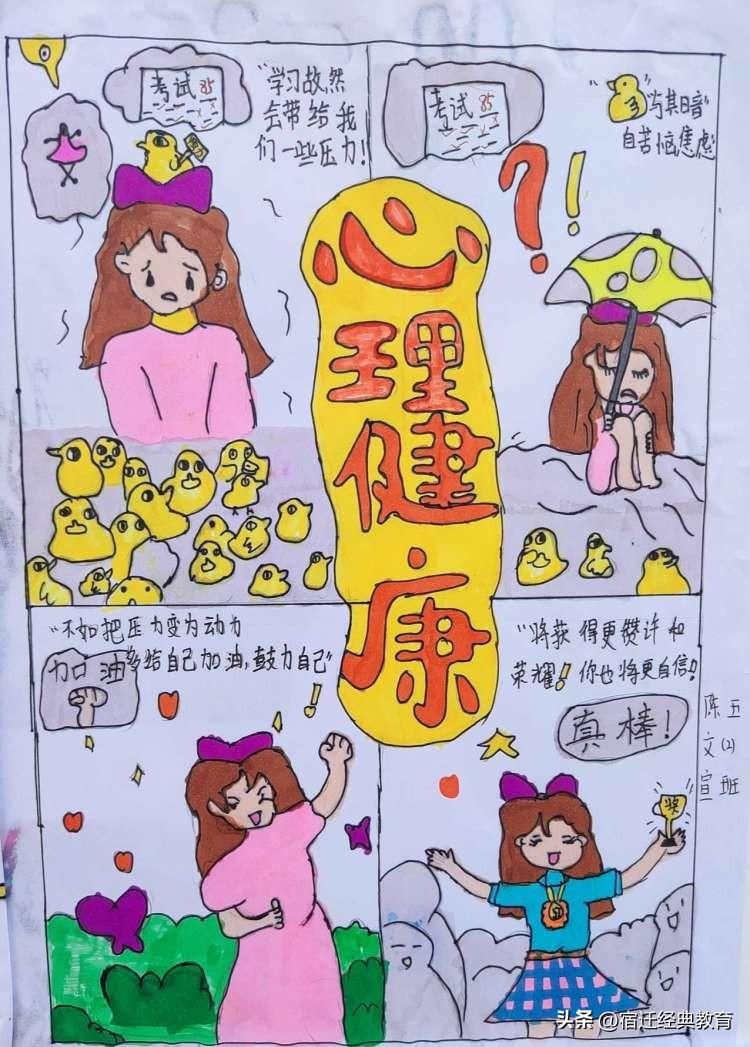 考试 85
"学习故然
会带给我
们一些压力!
考试 85
"与其暗
自苦恼焦虑
?!
心理健康
"不如把压力变为动力
多给自己加油,鼓力自己"
加油
!
"将获得更赞许和
荣耀!你也将更自信!
真棒!
奖
陈文宣
五(2)班
头条 @宿迁经典教育